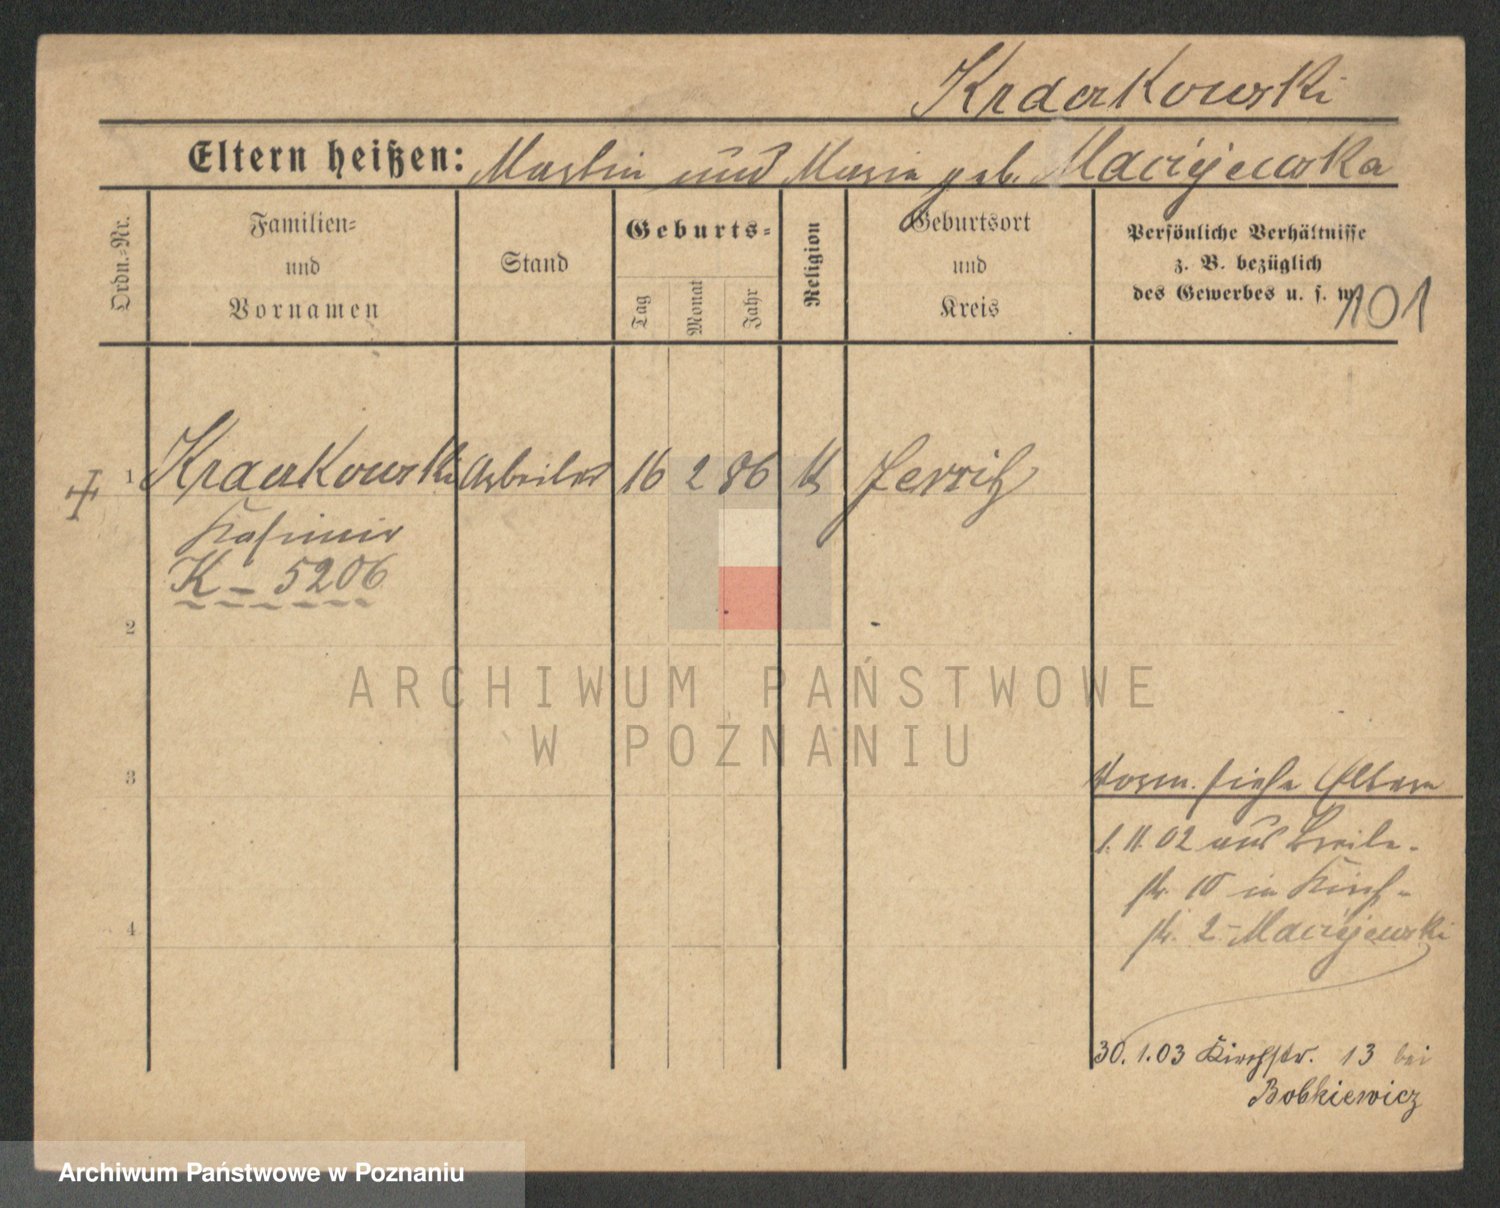 Krackowski
Eltern heißen: Martin und Maria geb. Maciejewska
Ordn.-Nr.
Familien-
und
Vornamen
Stand
Geburts-
Tag
Monat
Jahr
Religion
Geburtsort
und
Kreis
Persönliche Verhältnisse
z. B. bezüglich
des Gewerbes u. s. w.
101
1 Krackowski Arbeiter 16 2 86 k Jersitz
Kasimir
K - 5206
2
3
4
Vorm. siehe Eltern
1. 11. 02 aus Breite-
str. 10 in Kirch-
str. 2 - Maciejewski
30. 1. 03 Kirchstr. 13 bei
Bobkiewicz
ARCHIWUM PAŃSTWOWE
W POZNANIU
Archiwum Państwowe w Poznaniu